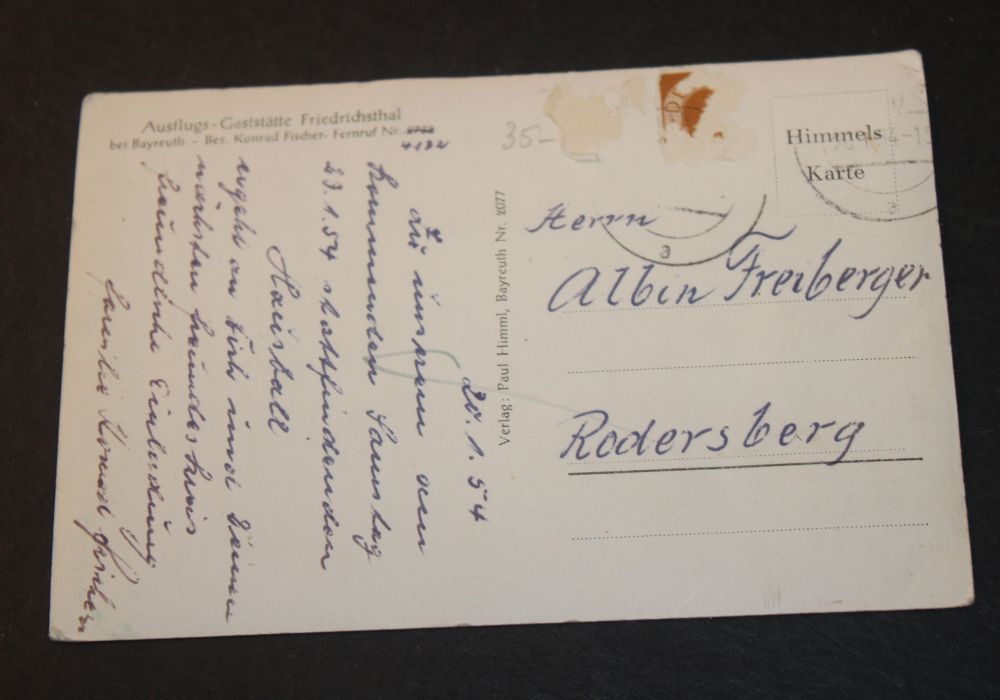 Ausflugs-Gaststätte Friedrichsthal
bei Bayreuth - Bes. Konrad Fischer- Fernruf Nr. 2762
4132
20. 1. 54
Zu unserem am
kommenden Samstag
23. 1. 54 stattfindenden
Hausball
ergeht an Dich und Deinen
nächsten Freundeskreis
freundliche Einladung
Familie Konrad Fischer
Verlag: Paul Himml, Bayreuth Nr. 2077
35-
Himmels
Karte
a
Herrn
Albin Freiberger
Rodersberg